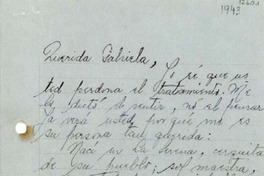 1943
Querida Gabriela,
Yo sé que us
ted perdona el tratamiento. Me
lo dictó el sentir, no el pensar
Ya verá usted por qué me es
su persona tan querida:
Nací en La Serena, cerquita
de su pueblo; soy maestra,